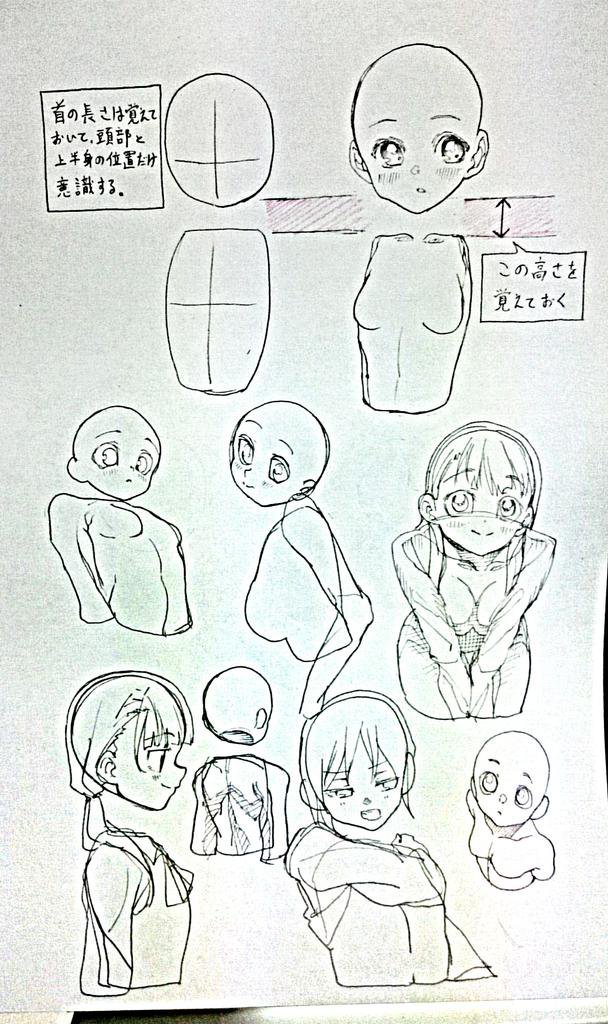 首の長さは覚えて
おいて、頭部と
上半身の位置だけ
意識する。
この高さを
覚えておく